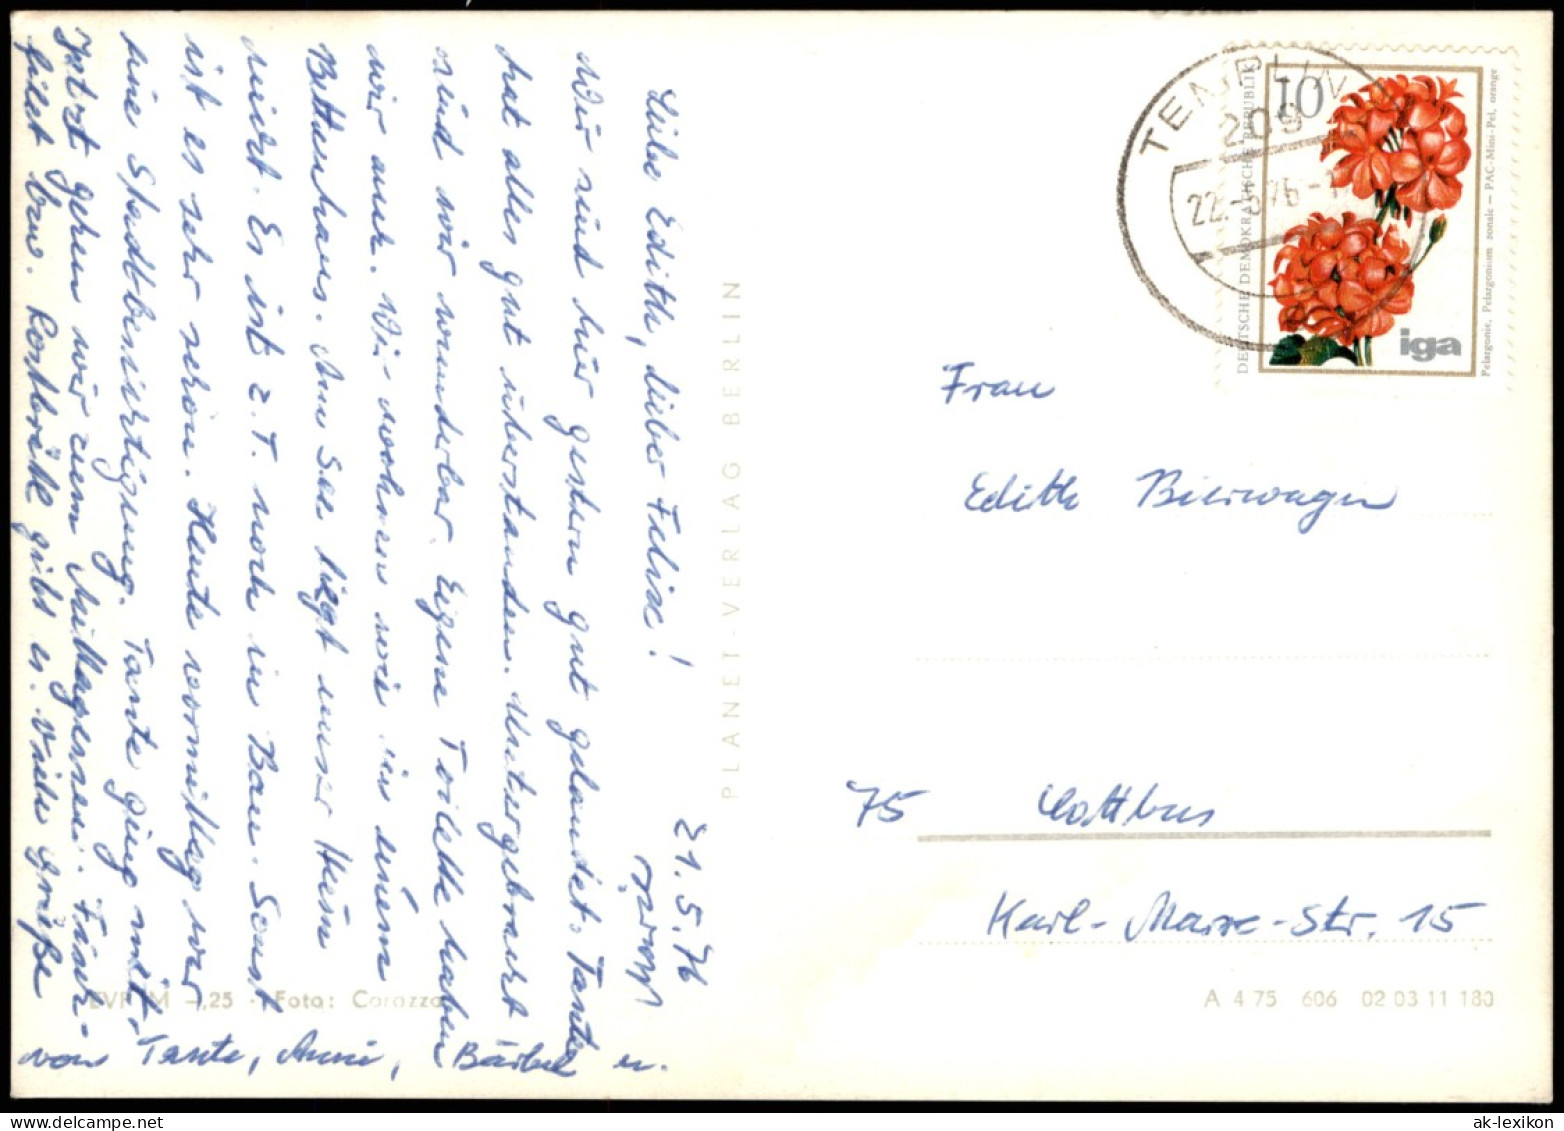 21.5.76
Liebe Edith, lieber Felix!
Wir sind hier gestern gut gelandet. Tante
hat alles gut überstanden. Untergebracht
sind wir wunderbar. Eigene Toilette haben
wir auch. Wir wohnen wie in einem
Bettenhaus. Am See liegt unser Heim
direkt. Es ist z.T. noch in Bau. Sonst
ist es sehr schön. Heute vormittag war
eine Stadtbesichtigung. Tante ging mit.
Jetzt gehen wir zum Mittagessen. Fisch-
filet bzw. Rostbrätel gibt es. Viele Grüße
von Tante, Anni, Bärbel u.
Horst
EVP M -,25 · Foto: Carazzo
PLANET-VERLAG BERLIN
TEMPLIN
209
22.-5.76-1
DEUTSCHE DEMOKRATISCHE REPUBLIK
10
iga
Pelargonie, Pelargonium zonale — PAC-Mini-Pel. orange
Frau
Edith Bierwagen
75 Cottbus
Karl-Marx-Str. 15
A 4 75 606 02 03 11 180
ak-lexikon